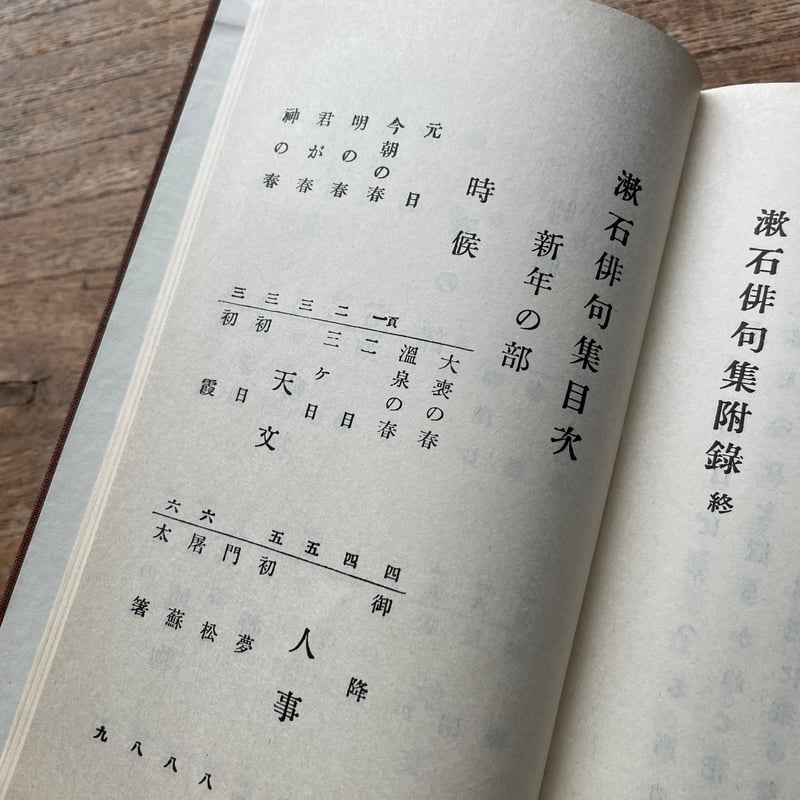 漱石俳句集附錄 終
漱石俳句集目次
新年の部
時候
元日 一頁
今朝の春 二
明の春 三
君が春 三
神の春 三
大喪の春 四
溫泉の春 四
二日 五
三ヶ日 五
天文
初日 六
初霞 六
御降
人事
初夢 八
門松 八
屠蘇 八
太箸 九